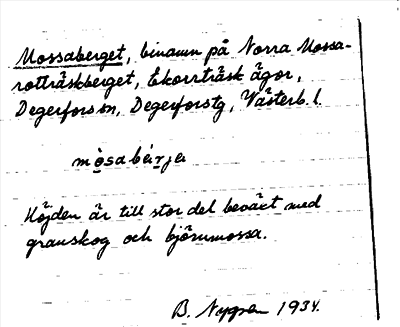 Mossaberget, binamn på Norra Mossa-
rotträskberget, Ekorrträsk ägor,
Degerfors sn, Degerfors tg, Västerb. l.
mòsabärjə
Höjden är till stor del beväxt med
granskog och björnmossa.
B. Nygren 1934.